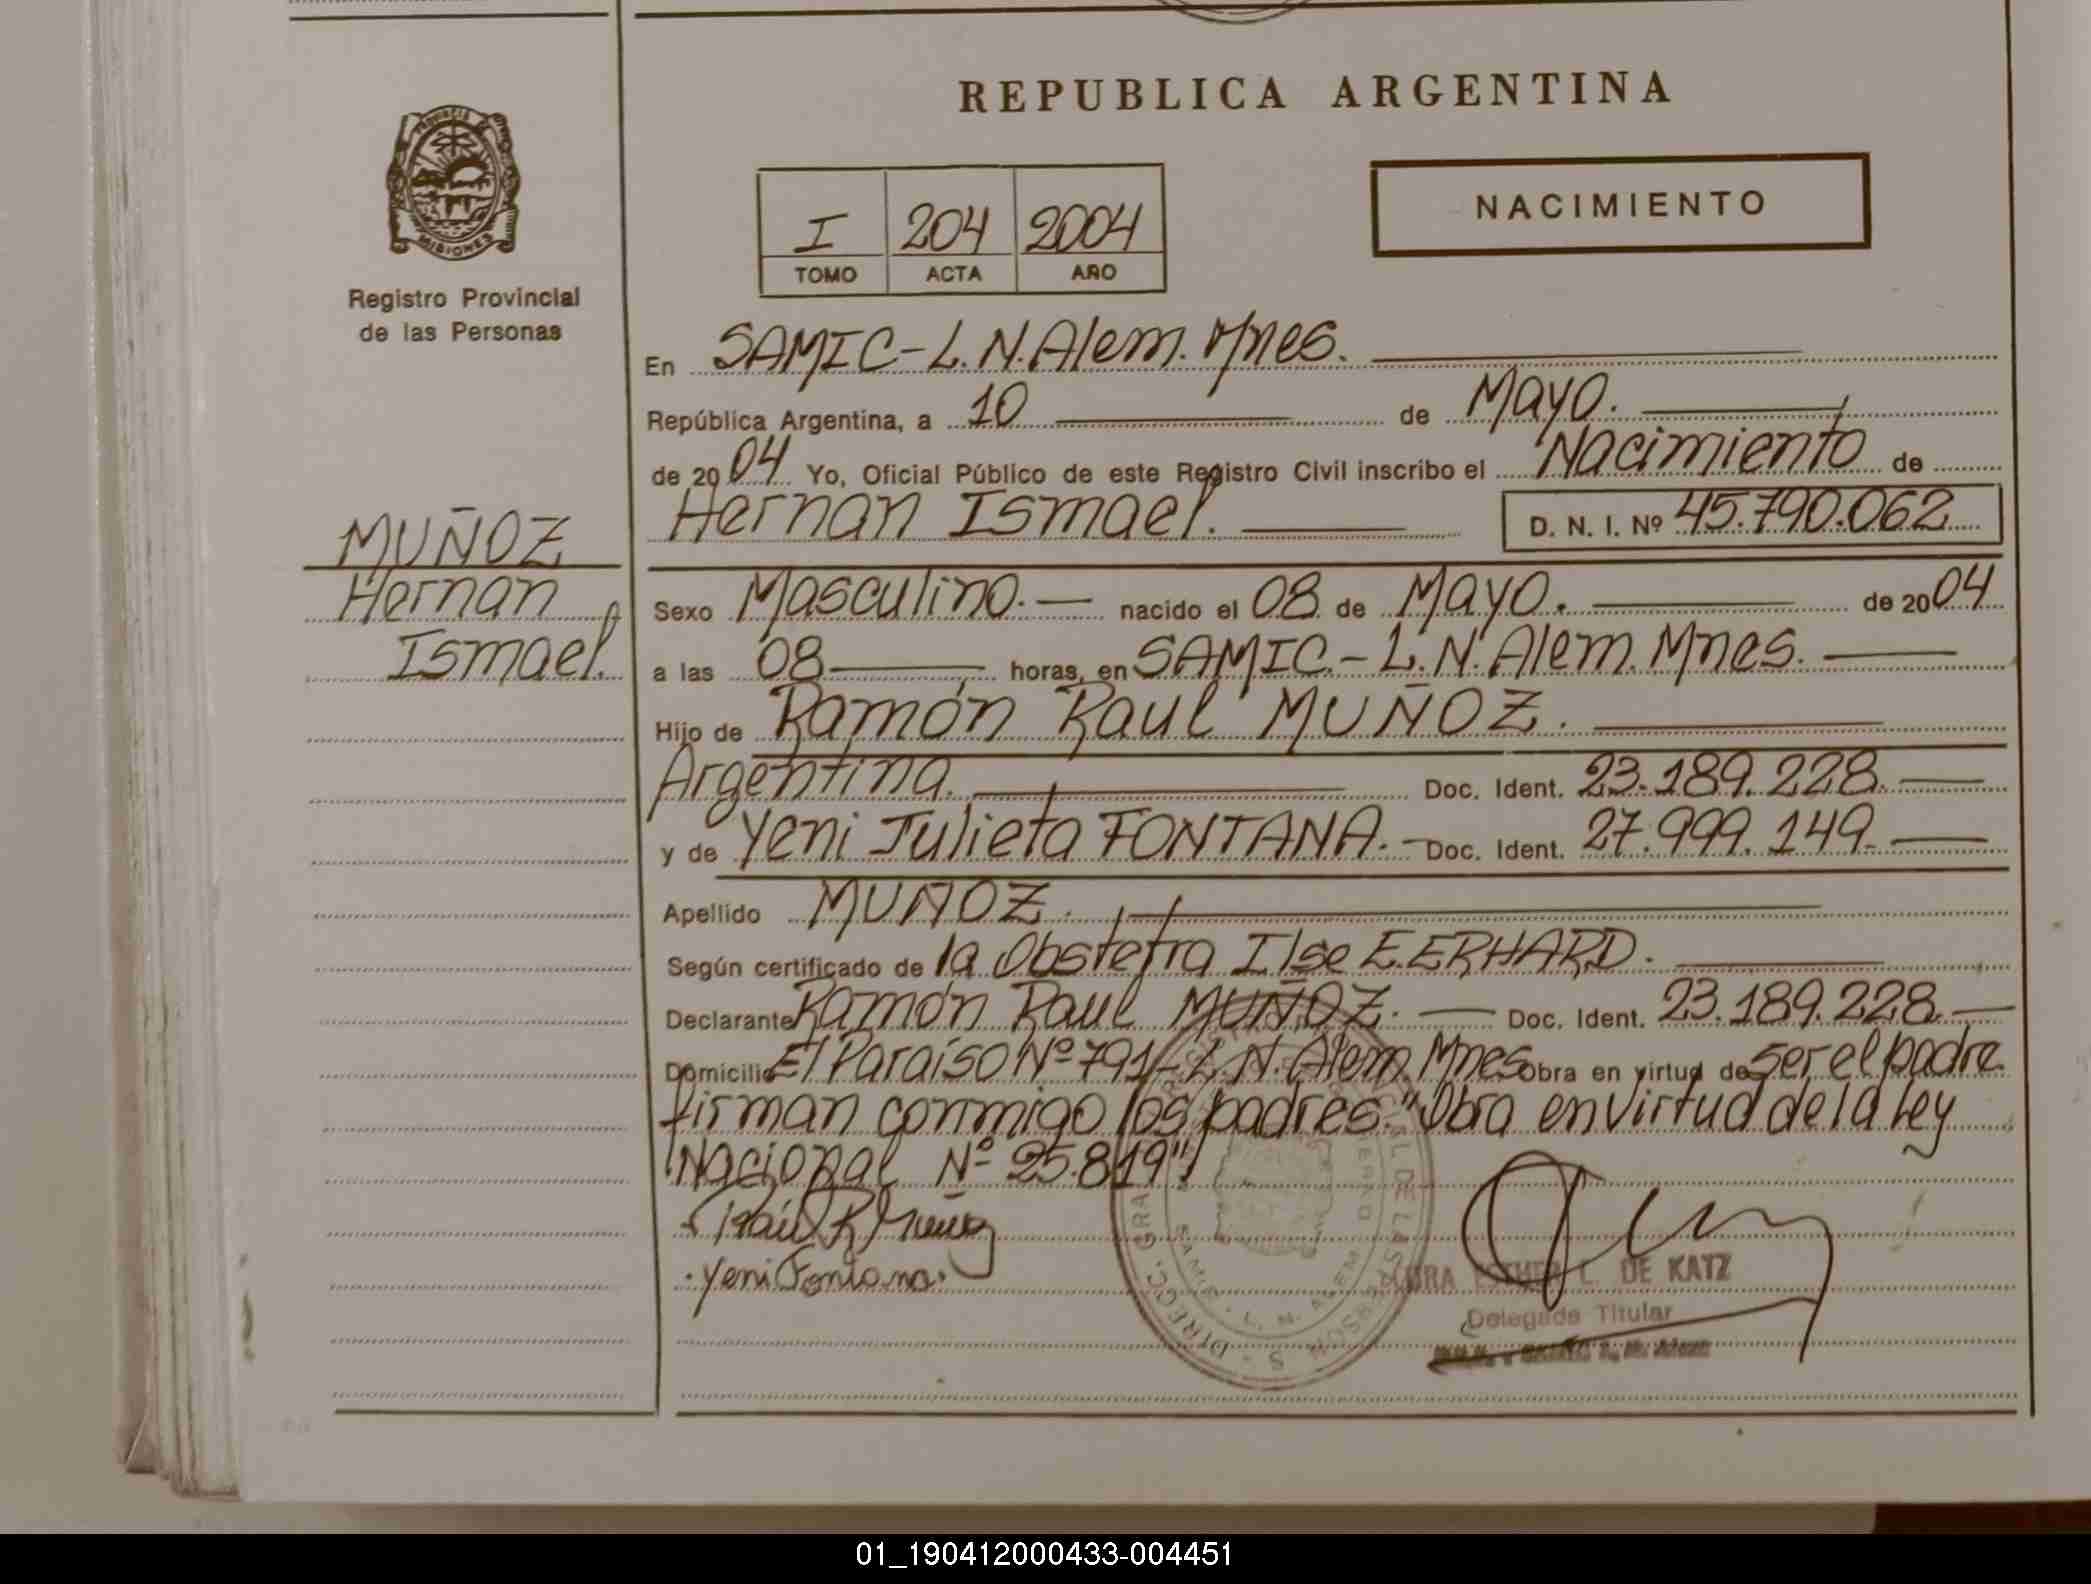 REPUBLICA ARGENTINA
PROVINCIA DE
MISIONES
Registro Provincial
de las Personas
I 204 2004
TOMO ACTA AÑO
NACIMIENTO
En SAMIC-L.N.Alem.Mnes.
República Argentina, a 10 de Mayo.
de 2004 Yo, Oficial Público de este Registro Civil inscribo el Nacimiento de
Hernan Ismael. D. N. I. Nº 45.790.062
MUÑOZ
Hernan
Ismael.
Sexo Masculino.- nacido el 08 de Mayo. de 2004
a las 08 horas, en SAMIC.-L.N.Alem.Mnes.
Hijo de Ramón Raul MUÑOZ.
Argentina. Doc. Ident. 23.189.228.
y de Yeni Julieta FONTANA.- Doc. Ident. 27.999.149.
Apellido MUÑOZ.
Según certificado de la Obstetra Ilse E.ERHARD.
Declarante Ramón Raul MUÑOZ. Doc. Ident. 23.189.228
Domicilio El Paraíso Nº 791-L.N.Alem.Mnes Obra en virtud de ser el padre.
firman conmigo los padres."Obra en virtud de la Ley
Nacional Nº 25.819"
Raúl R Muñoz
Yeni Fontana.
ESTHER L. DE KATZ
Delegada Titular
01_190412000433-004451